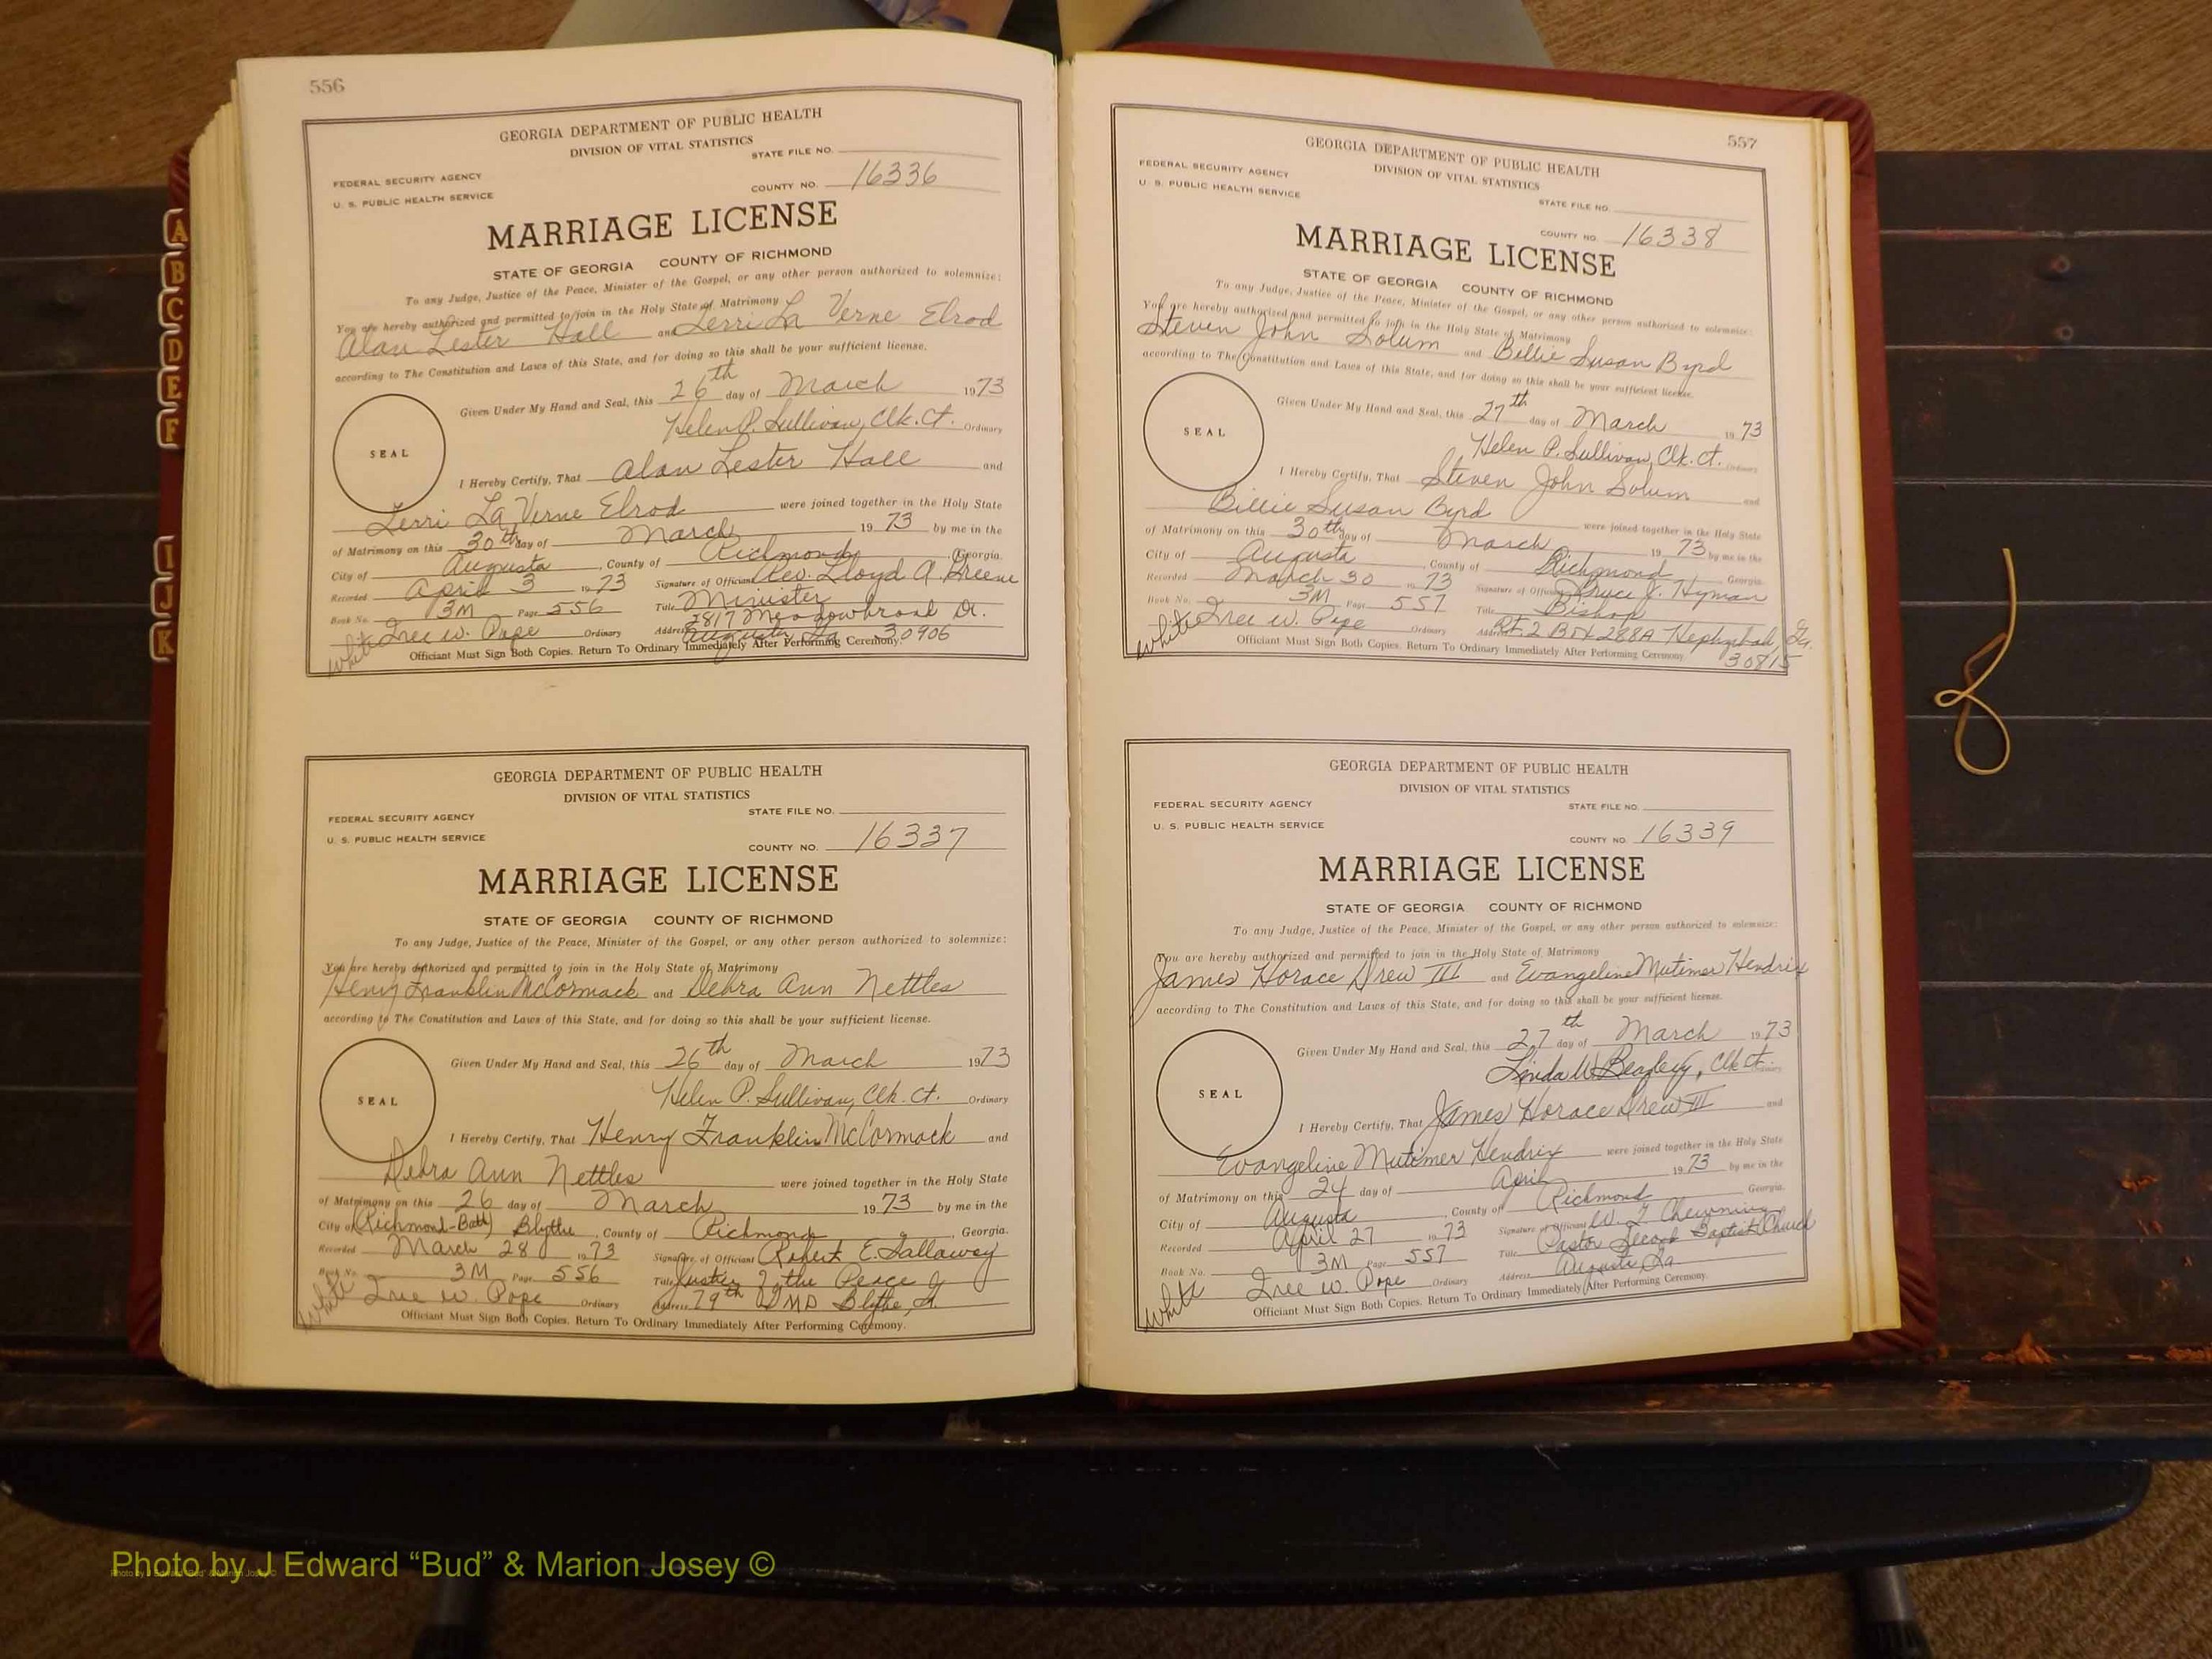 556
GEORGIA DEPARTMENT OF PUBLIC HEALTH
DIVISION OF VITAL STATISTICS
STATE FILE NO.
FEDERAL SECURITY AGENCY
U. S. PUBLIC HEALTH SERVICE
COUNTY NO. 16336
MARRIAGE LICENSE
STATE OF GEORGIA COUNTY OF RICHMOND
To any Judge, Justice of the Peace, Minister of the Gospel, or any other person authorized to solemnize:
You are hereby authorized and permitted to join in the Holy State of Matrimony
Alan Lester Hall and Terri La Verne Elrod
according to The Constitution and Laws of this State, and for doing so this shall be your sufficient license.
Given Under My Hand and Seal, this 26th day of March 1973
Helen P. Sullivan, Clk. Ct. Ordinary
SEAL
I Hereby Certify, That Alan Lester Hall and
Terri La Verne Elrod were joined together in the Holy State
of Matrimony on this 30th day of March 1973 by me in the
City of Augusta, County of Richmond, Georgia.
Recorded April 3 1973 Signature of Officiant Rev. Lloyd A. Greene
Book No. 3M Page 556 Title Minister
White Iree W. Pope Ordinary Address 2817 Meadowbrook Dr.
Augusta Ga 30906
Officiant Must Sign Both Copies. Return To Ordinary Immediately After Performing Ceremony.
GEORGIA DEPARTMENT OF PUBLIC HEALTH
DIVISION OF VITAL STATISTICS
STATE FILE NO.
FEDERAL SECURITY AGENCY
U. S. PUBLIC HEALTH SERVICE
COUNTY NO. 16337
MARRIAGE LICENSE
STATE OF GEORGIA COUNTY OF RICHMOND
To any Judge, Justice of the Peace, Minister of the Gospel, or any other person authorized to solemnize:
You are hereby authorized and permitted to join in the Holy State of Matrimony
Henry Franklin McCormack and Debra Ann Nettles
according to The Constitution and Laws of this State, and for doing so this shall be your sufficient license.
Given Under My Hand and Seal, this 26th day of March 1973
Helen P. Sullivan, Clk. Ct. Ordinary
SEAL
I Hereby Certify, That Henry Franklin McCormack and
Debra Ann Nettles were joined together in the Holy State
of Matrimony on this 26 day of March 1973 by me in the
City of (Richmond-Bath) Blythe, County of Richmond, Georgia.
Recorded March 28 1973 Signature of Officiant Robert E. Sallawey
Book No. 3M Page 556 Title Justice of the Peace
White Iree W. Pope Ordinary Address 79th GMD Blythe, Ga.
Officiant Must Sign Both Copies. Return To Ordinary Immediately After Performing Ceremony.
557
GEORGIA DEPARTMENT OF PUBLIC HEALTH
DIVISION OF VITAL STATISTICS
FEDERAL SECURITY AGENCY
U. S. PUBLIC HEALTH SERVICE
STATE FILE NO.
COUNTY NO. 16338
MARRIAGE LICENSE
STATE OF GEORGIA COUNTY OF RICHMOND
To any Judge, Justice of the Peace, Minister of the Gospel, or any other person authorized to solemnize:
You are hereby authorized and permitted to join in the Holy State of Matrimony
Steven John Solum and Billie Susan Byrd
according to The Constitution and Laws of this State, and for doing so this shall be your sufficient license.
Given Under My Hand and Seal, this 27th day of March 1973
Helen P. Sullivan, Clk. Ct. Ordinary
SEAL
I Hereby Certify, That Steven John Solum and
Billie Susan Byrd were joined together in the Holy State
of Matrimony on this 30th day of March 1973 by me in the
City of Augusta, County of Richmond, Georgia
Recorded March 30 1973 Signature of Officiant Bruce J. Hyman
Book No. 3M Page 557 Title Bishop
White Iree W. Pope Ordinary Address Rt. 2 Box 288A Hephzibah, Ga.
30815
Officiant Must Sign Both Copies. Return To Ordinary Immediately After Performing Ceremony.
GEORGIA DEPARTMENT OF PUBLIC HEALTH
DIVISION OF VITAL STATISTICS
FEDERAL SECURITY AGENCY
STATE FILE NO.
U. S. PUBLIC HEALTH SERVICE
COUNTY NO. 16339
MARRIAGE LICENSE
STATE OF GEORGIA COUNTY OF RICHMOND
To any Judge, Justice of the Peace, Minister of the Gospel, or any other person authorized to solemnize:
You are hereby authorized and permitted to join in the Holy State of Matrimony
James Horace Drew III and Evangeline Mutimer Hendrix
according to The Constitution and Laws of this State, and for doing so this shall be your sufficient license.
Given Under My Hand and Seal, this 27th day of March 1973
Linda W. Beazley, Clk Ct. Ordinary
SEAL
I Hereby Certify, That James Horace Drew III and
Evangeline Mutimer Hendrix were joined together in the Holy State
of Matrimony on this 24 day of April 1973 by me in the
City of Augusta, County of Richmond Georgia.
Recorded April 27 1973 Signature of Officiant W. T. Chewning
Book No. 3M Page 557 Title Pastor Second Baptist Church
White Iree W. Pope Ordinary Address Augusta, Ga
Officiant Must Sign Both Copies. Return To Ordinary Immediately After Performing Ceremony.
A
B
C
D
E
F
I
J
K
Photo by J Edward “Bud” & Marion Josey ©